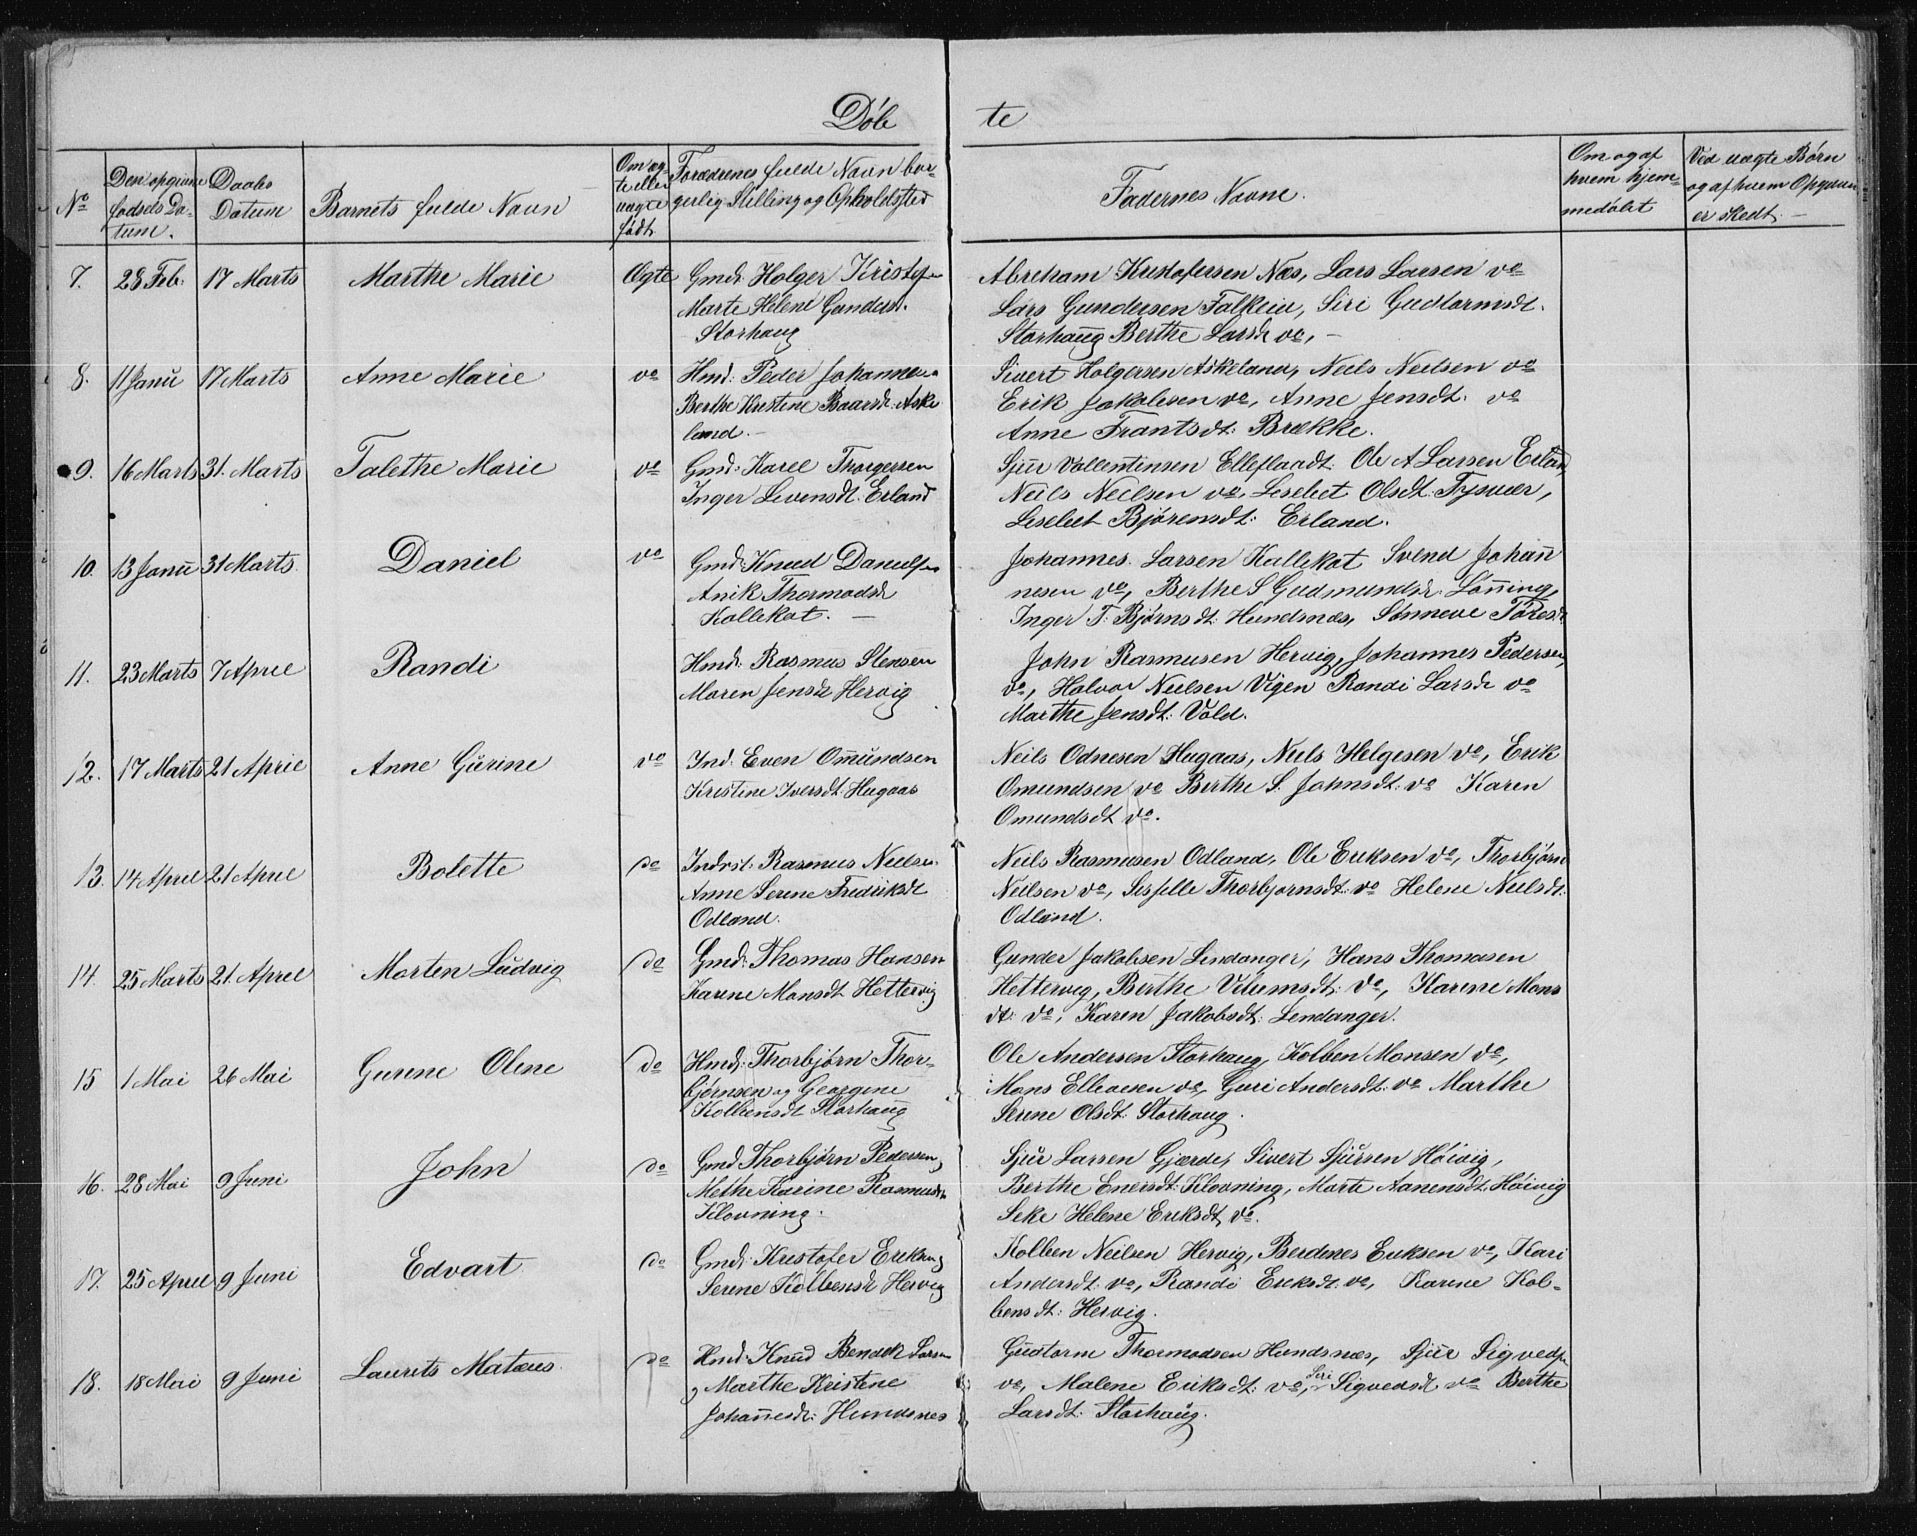 Døbte
No
Den opgivne
fødsels Da-
tum.
Daabs
Datum
Barnets fulde Navn
Om æg-
te eller
uægte
født
Forædrenes fulde Navn bor-
gerlig Stilling og Opholdsted
Fadernes Navne.
Om og af
hvem hjem-
medøbt
Ved uægte Børn
og af hvem Opgaven
er skedt. —
7. 28 Feb: 17 Marts Marthe Marie Ægte Gmd: Holger Kristofe
Marte Helene Gunders.
Storhaug
Abreham Kristofersen Næs, Lars Larsen do
Lars Gundersen Falkeiu, Siri Gudtormsdt.
Storhaug Berthe Larsdr do, —
8. 11 Janu 17 Marts Anne Marie do Hmd: Peder Johannes
Berthe Kristine Baarsdr Aske
land. —
Sivert Holgersen Askeland, Neils Neilsen do
Erik Jakobsen do, Anne Jensdt. do
Anne Frantsdt: Brække.
9. 16 Marts 31. Marts Talethe Marie do Gmd: Karel Thorgersen
Inger Sevensdt. Erland
Sjur Vallentinsen Elleflaadt. Ole A Larsen Erland
Neils Neilsen do, Lesebet Olsdt: Tysvær,
Lesebet Bjørensdt: Erland.
10. 13 Janu 31 Marts Daniel do Gmd: Knud Danielse
Anik Thormodsdr
Kallekot. —
Johannes Larsen Kallekot Svend Johan
nesen do, Berthe S Gudmundsdr. Lønning,
Inger T. Bjørnsdt: Hundsnæs, Sønneve Toresdr
11. 23 Marts 7 Aprel Randi Hmd: Rasmus Stensen
Maren Jensdr Hervig
John Rasmusen Hervig, Johannes Pedersen
do, Halvor Neilsen Vigen Randi Larsdr do
Marthe Jensdt: Vold.
12. 17 Marts 21 Aprel Anne Gurine do Ind: Even Omundsen
Kristine Iversdt: Hugaas
Neils Odnesen Hugaas, Niels Helgesen do, Erik
Omundsen do Berthe S. Johnsdt: do Karen
Omundsdt do.
13. 14 Aprel 21 Aprel Bolette do Indrst: Rasmus Neilse
Anne Serene Fredriksdt
Odland.
Neils Rasmusen Odland, Ole Eriksen do, Thorbjørn
Neilsen do, Sisselle Thorbjornsdt: do Helene Neilsdt:
Odland.
14. 25 Marts 21. Aprel Morten Ludvig do Gmd: Thomas Hansen
Karene Monsdt Hettervig
Gunder Jakobsen Lindanger, Hans Thomasen
Hetterveg, Berthe Vilumsdt: do, Karene Mons
dt: do, Karen Jakobsdt: Lendanger.
15 1 Mai 26 Mai Gurene Olene do Hmd: Thorbjørn Thor-
bjørnsen og Georgine
Kolbensdt Storhaug
Ole Andersen Storhaug, Kolben Monsen do,
Mons Ellevesen do, Guri Andersdt: do Marthe
Serene Olsdt: Storhaug.
16. 28 Mai 9 Juni John do Gmd Thorbjørn Pedersen
Methe Karine Rasmusdr
Klovning.
Sjur Larsen Gjærde, Sivert Sjursen Høivig,
Berthe Enersdt: Klovning, Marte Aanensdt: Høivig
Seke Helene Eriksdt, do.
17. 25 Aprel 9 Juni Edvart do Gmd: Kristofer Eriksen
Serene Kolbensdr Hervig
Kolben Neilsen Hervig, Berdenes Euksen do, Kari
Andersdt: do, Randi Eriksdt: do, Karene Kol-
bensdt: Hervig.
18. 18 Mai 9 Juni Laurits Matæus do Hmd: Knud Bendek Larse
og Marthe Kristine
Johannesdr: Hundsnes
Gudtorm Thormodsen Hundsnæs, Sjur Sigvedse
do, Malene Eriksdt: do, Siri Sigvedsdt do Berthe
Larsdt: Storhaug.